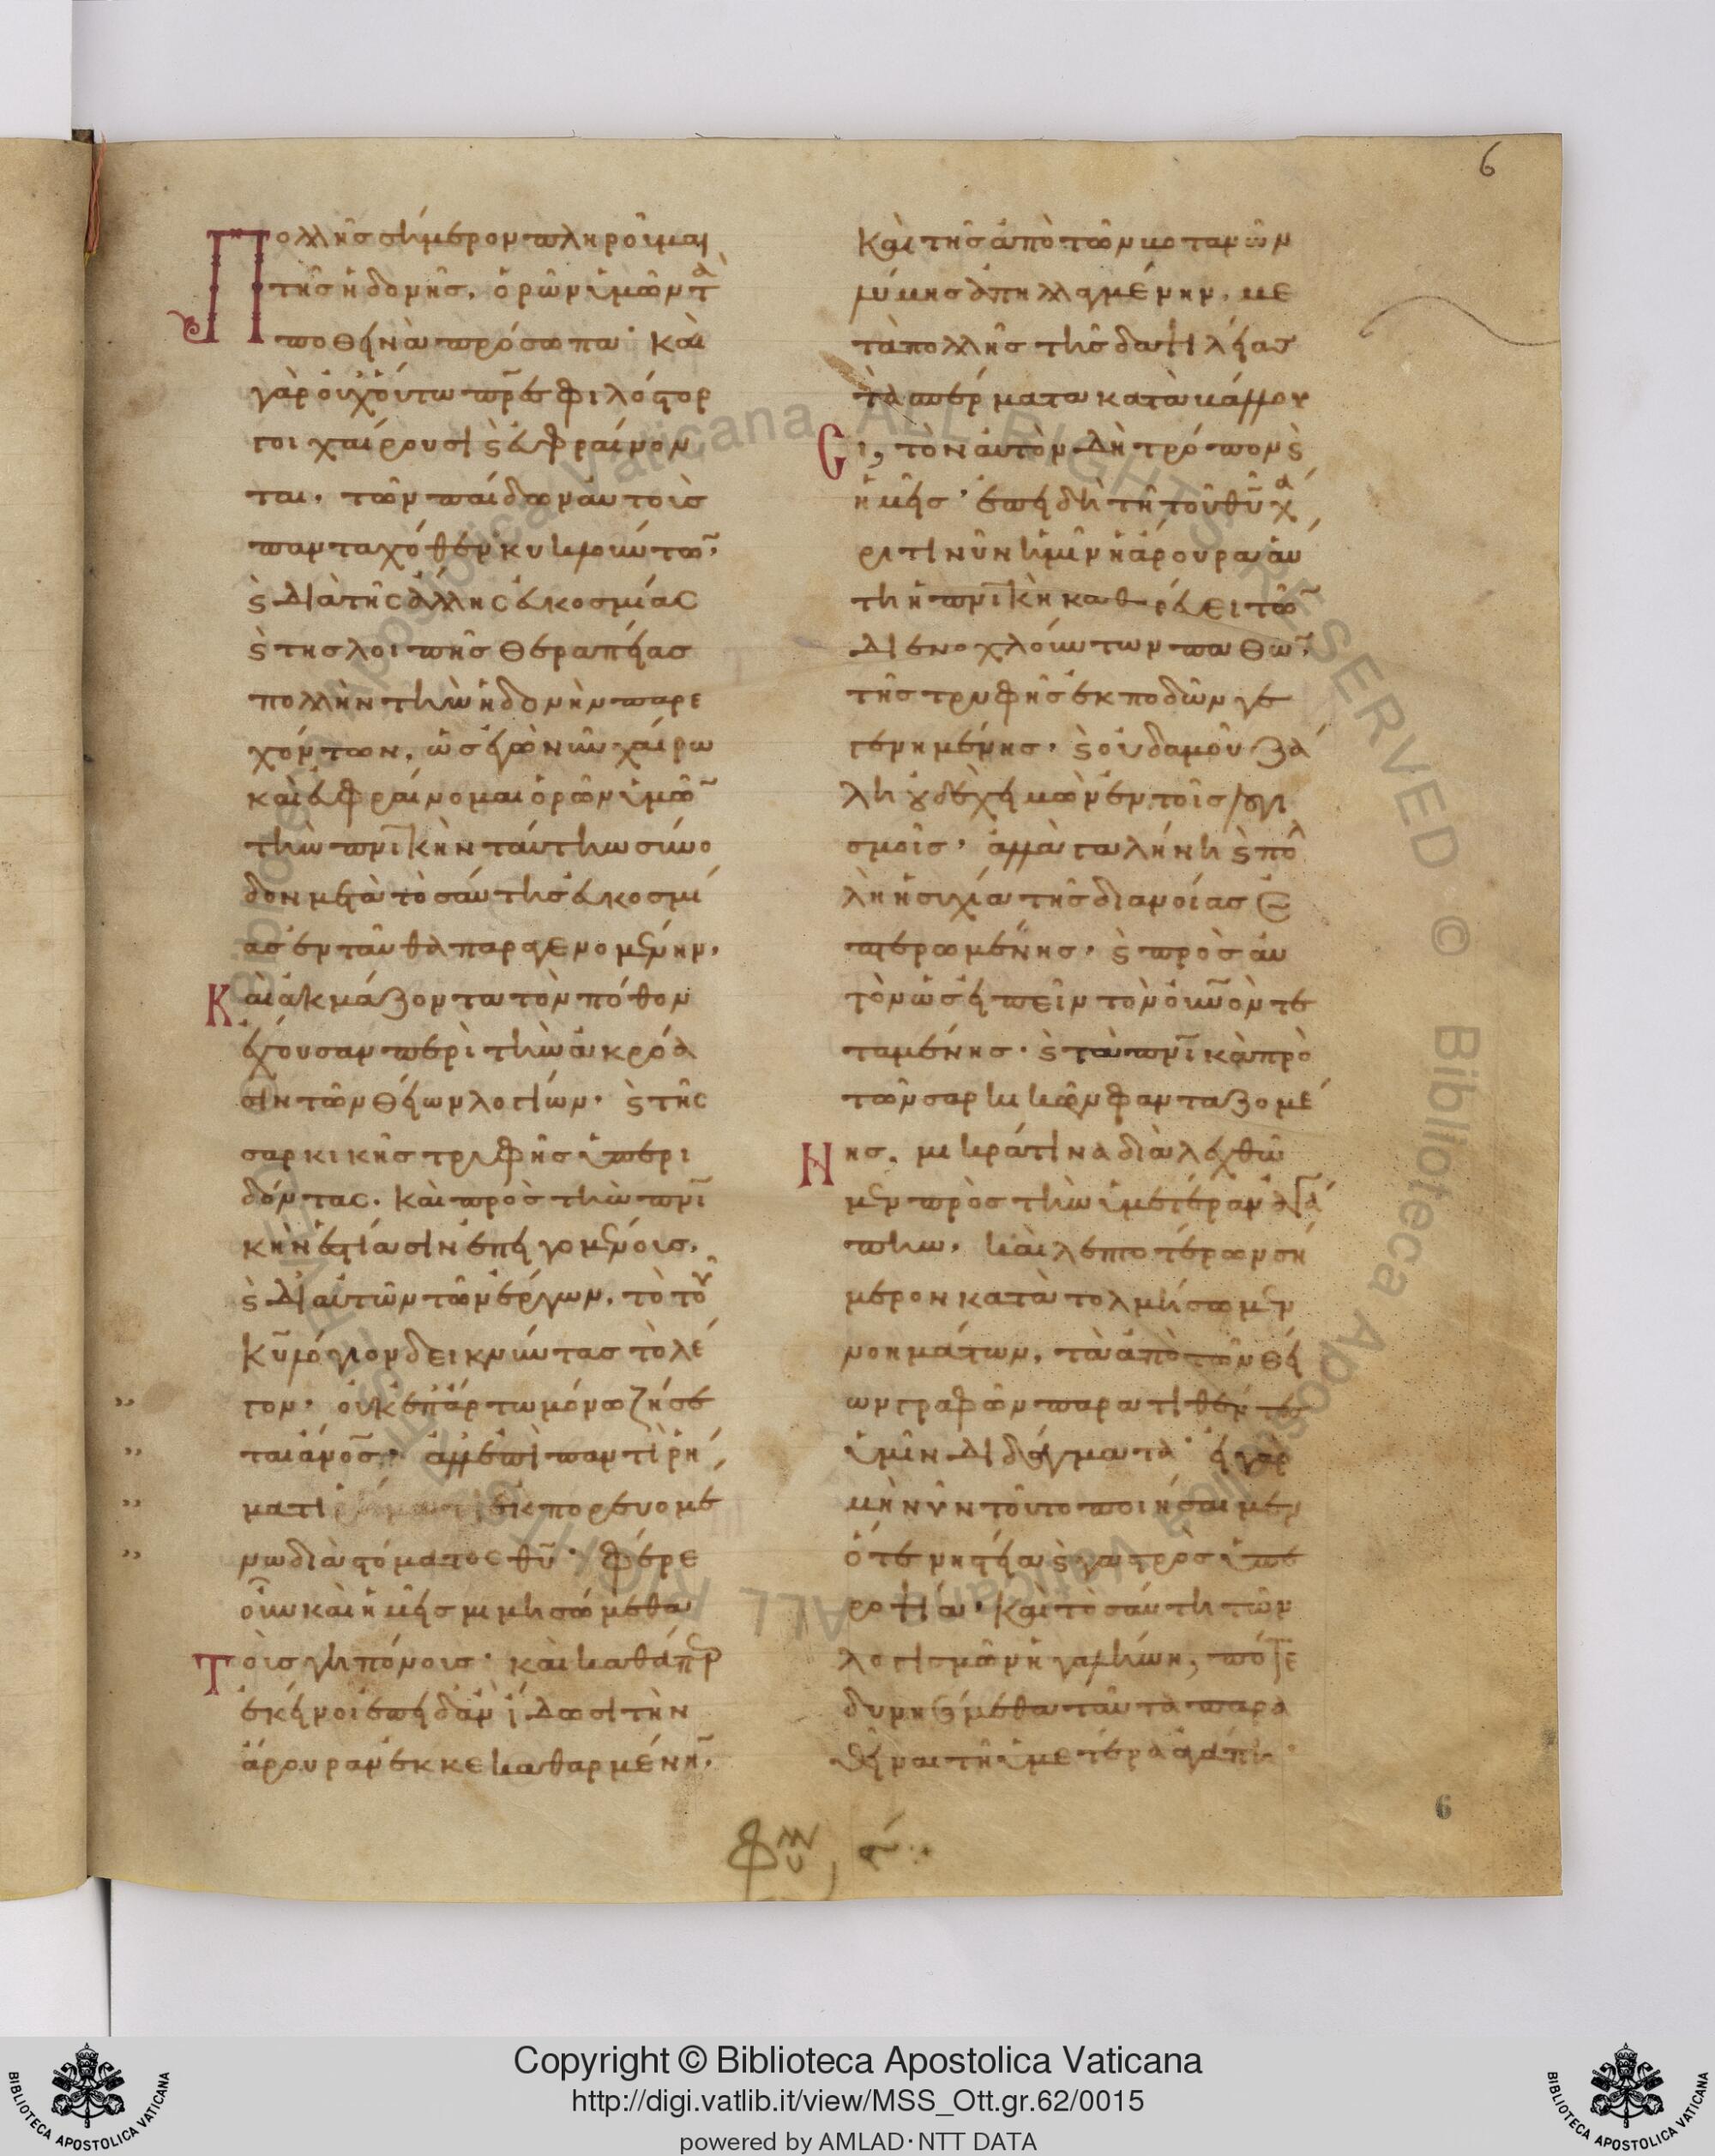 6
Πολλῆς σήμερον πληροῦμαι
τῆς ἡδονῆς, ὁρῶν ὑμῶν τὰ
ποθεινὰ πρόσωπα· Καὶ
γὰρ οὐχ οὕτω πρ̅ες φιλόστορ
γοι χαίρουσι ϗ εὐφραίνον
ται, τῶν παίδων αὐτοῖς
πανταχόθεν κυκλούντω̅,
ϗ διὰ τῆς ἄλλης εὐκοσμίας
ϗ τῆς λοιπῆς θεραπείας
πολλὴν τὴν ἡδονὴν παρε
χόντων, ὡς ἐγὼ νῦν χαίρω
καὶ εὐφραίνομαι ὁρῶν ὑμῶ̅
τὴν πνι̅κὴν ταύτην σύνο
δον μετὰ τοσαύτης εὐκοσμί
ας ἐνταῦθα παραγενομένην,
Καὶ ἀκμάζοντα τὸν πόθον
ἔχουσαν περὶ τὴν ἀκρόα
σιν τῶν θείων λογίων· ϗ τῆς
σαρκικῆς τρυφῆς ὑπερι
δόντας. Καὶ πρὸς τὴν πνι̅
κὴν ἑστίασιν ἐπειγομένοις,
ϗ δι αὐτῶν τῶν ἔργων, τὸ τοῦ
κυ̅ λόγιον δεικνύντας τὸ λέ
γον· οὐκ ἐπ ἄρτω μόνω ζήσε
ται ἄνος̅· ἀλλ ἐπὶ παντὶ ῥή
ματι ἐκπορευομέ
νω διὰ στόματος θυ̅· Φέρε
οὖν καὶ ἡμεῖς μιμησώμεθα
Τοὺς γηπόνους· καὶ καθάπερ
ἐκεῖνοι ἐπειδὰν ἴδωσι τὴν
ἄρουραν ἐκκεκαθαρμένη̅,
Καὶ τῆς ἀπὸ τῶν βοτανῶν
λύμης ἀπηλλαγμένην, με
τὰ πολλῆς τῆς δαψιλείας
τὰ σπέρματα καταβάλλου
Σι, τὸν αὐτὸν δὴ τρόπον ϗ
ἡμεῖς· ἐπειδὴ τῆ τοῦ θυ̅ χά
ριτι νῦν ἡμῖν ἡ ἄρουρα αὐ
τη ἡ πνι̅κὴ καθαρεύει τῶ̅
διενοχλούντων παθω̅,
τῆς τρυφῆς ἐκποδῶν γε
γενημένης, ϗ οὐδαμοῦ ζά
λη οὐδὲ χειμὼν ἐν τοῖς λογι
σμοῖς· ἀλλὰ γαλήνη ϗ πολ
λὴ ἡσυχία τῆς διανοίας ἀνα
πτερωμένης, ϗ πρὸς αὐ
τὸν ὡς εἰπεῖν τὸν οὐνον̅ τε
ταμένης· ϗ τὰ πνι̅κὰ πρὸ
τῶν σαρκικῶν φανταζομέ
νης, μικρά τινα διαλεχθῶ
μεν πρὸς τὴν ὑμετέραν ἀγά
πην, καὶ λεπτοτέρων σή
μερον κατατολμήσωμεν
νοημάτων, τὰ ἀπὸ τῶν θεί
ων γραφῶν παρατιθέντες
ὑμῖν διδάγματα· εἰ γὰρ
μὴ νῦν τοῦτο ποιήσαιμεν
ὅτε νηστεία ϗ γαστρὸς ὑπε
ροψία· καὶ τοσαύτη τῶν
λογισμῶν ἡ γαλήνη, πότε
δυνησόμεθα ταῦτα παρα
θεῖναι τῆ ὑμετέρα ἀγάπη·
6
Copyright © Biblioteca Apostolica Vaticana
http://digi.vatlib.it/view/MSS_Ott.gr.62/0015
powered by AMLAD·NTT DATA
BIBLIOTECA APOSTOLICA VATICANA
BIBLIOTECA APOSTOLICA VATICANA